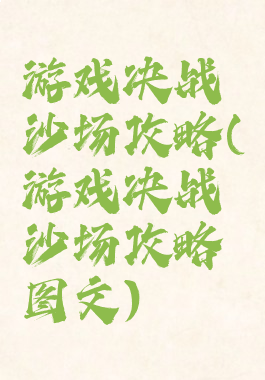 游戏决战
沙场攻略(
游戏决战
沙场攻略
图文)